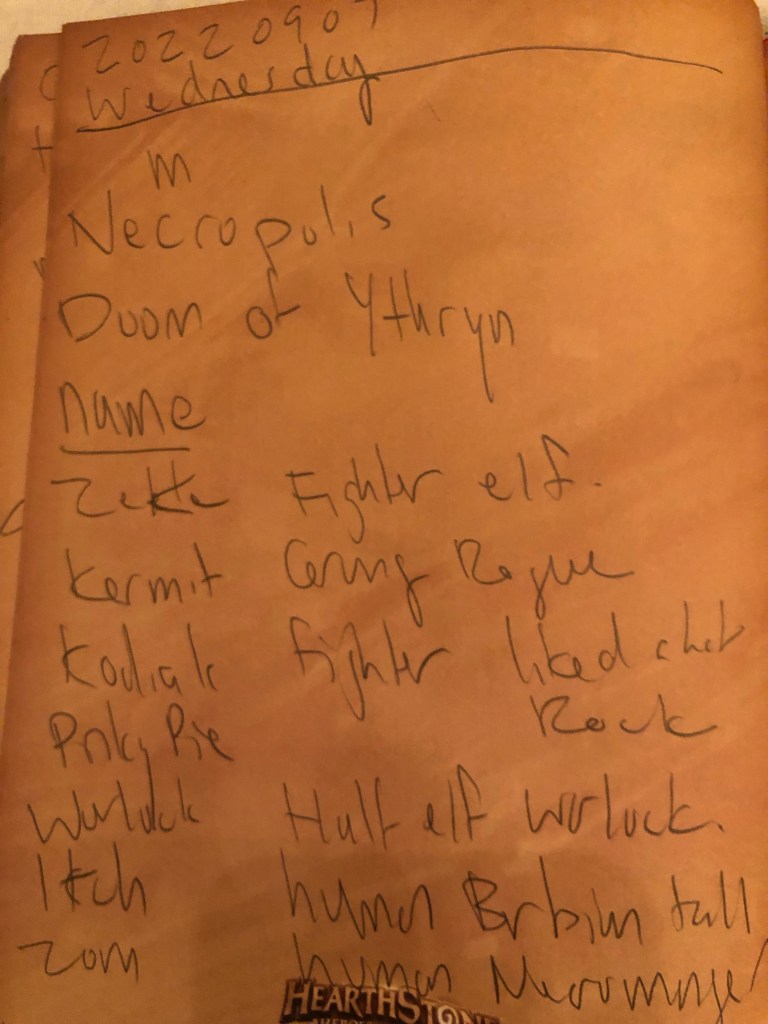 20220907
Wednesday
m
Necropolis
Doom of Ythryn
name
Fighter elf.
Kermit Rogue
Kodiak fighter liked chat
Pinky Pie Rock
Warlock Half elf warlock.
Itch human tall
Zom human
HEARTHSTONE